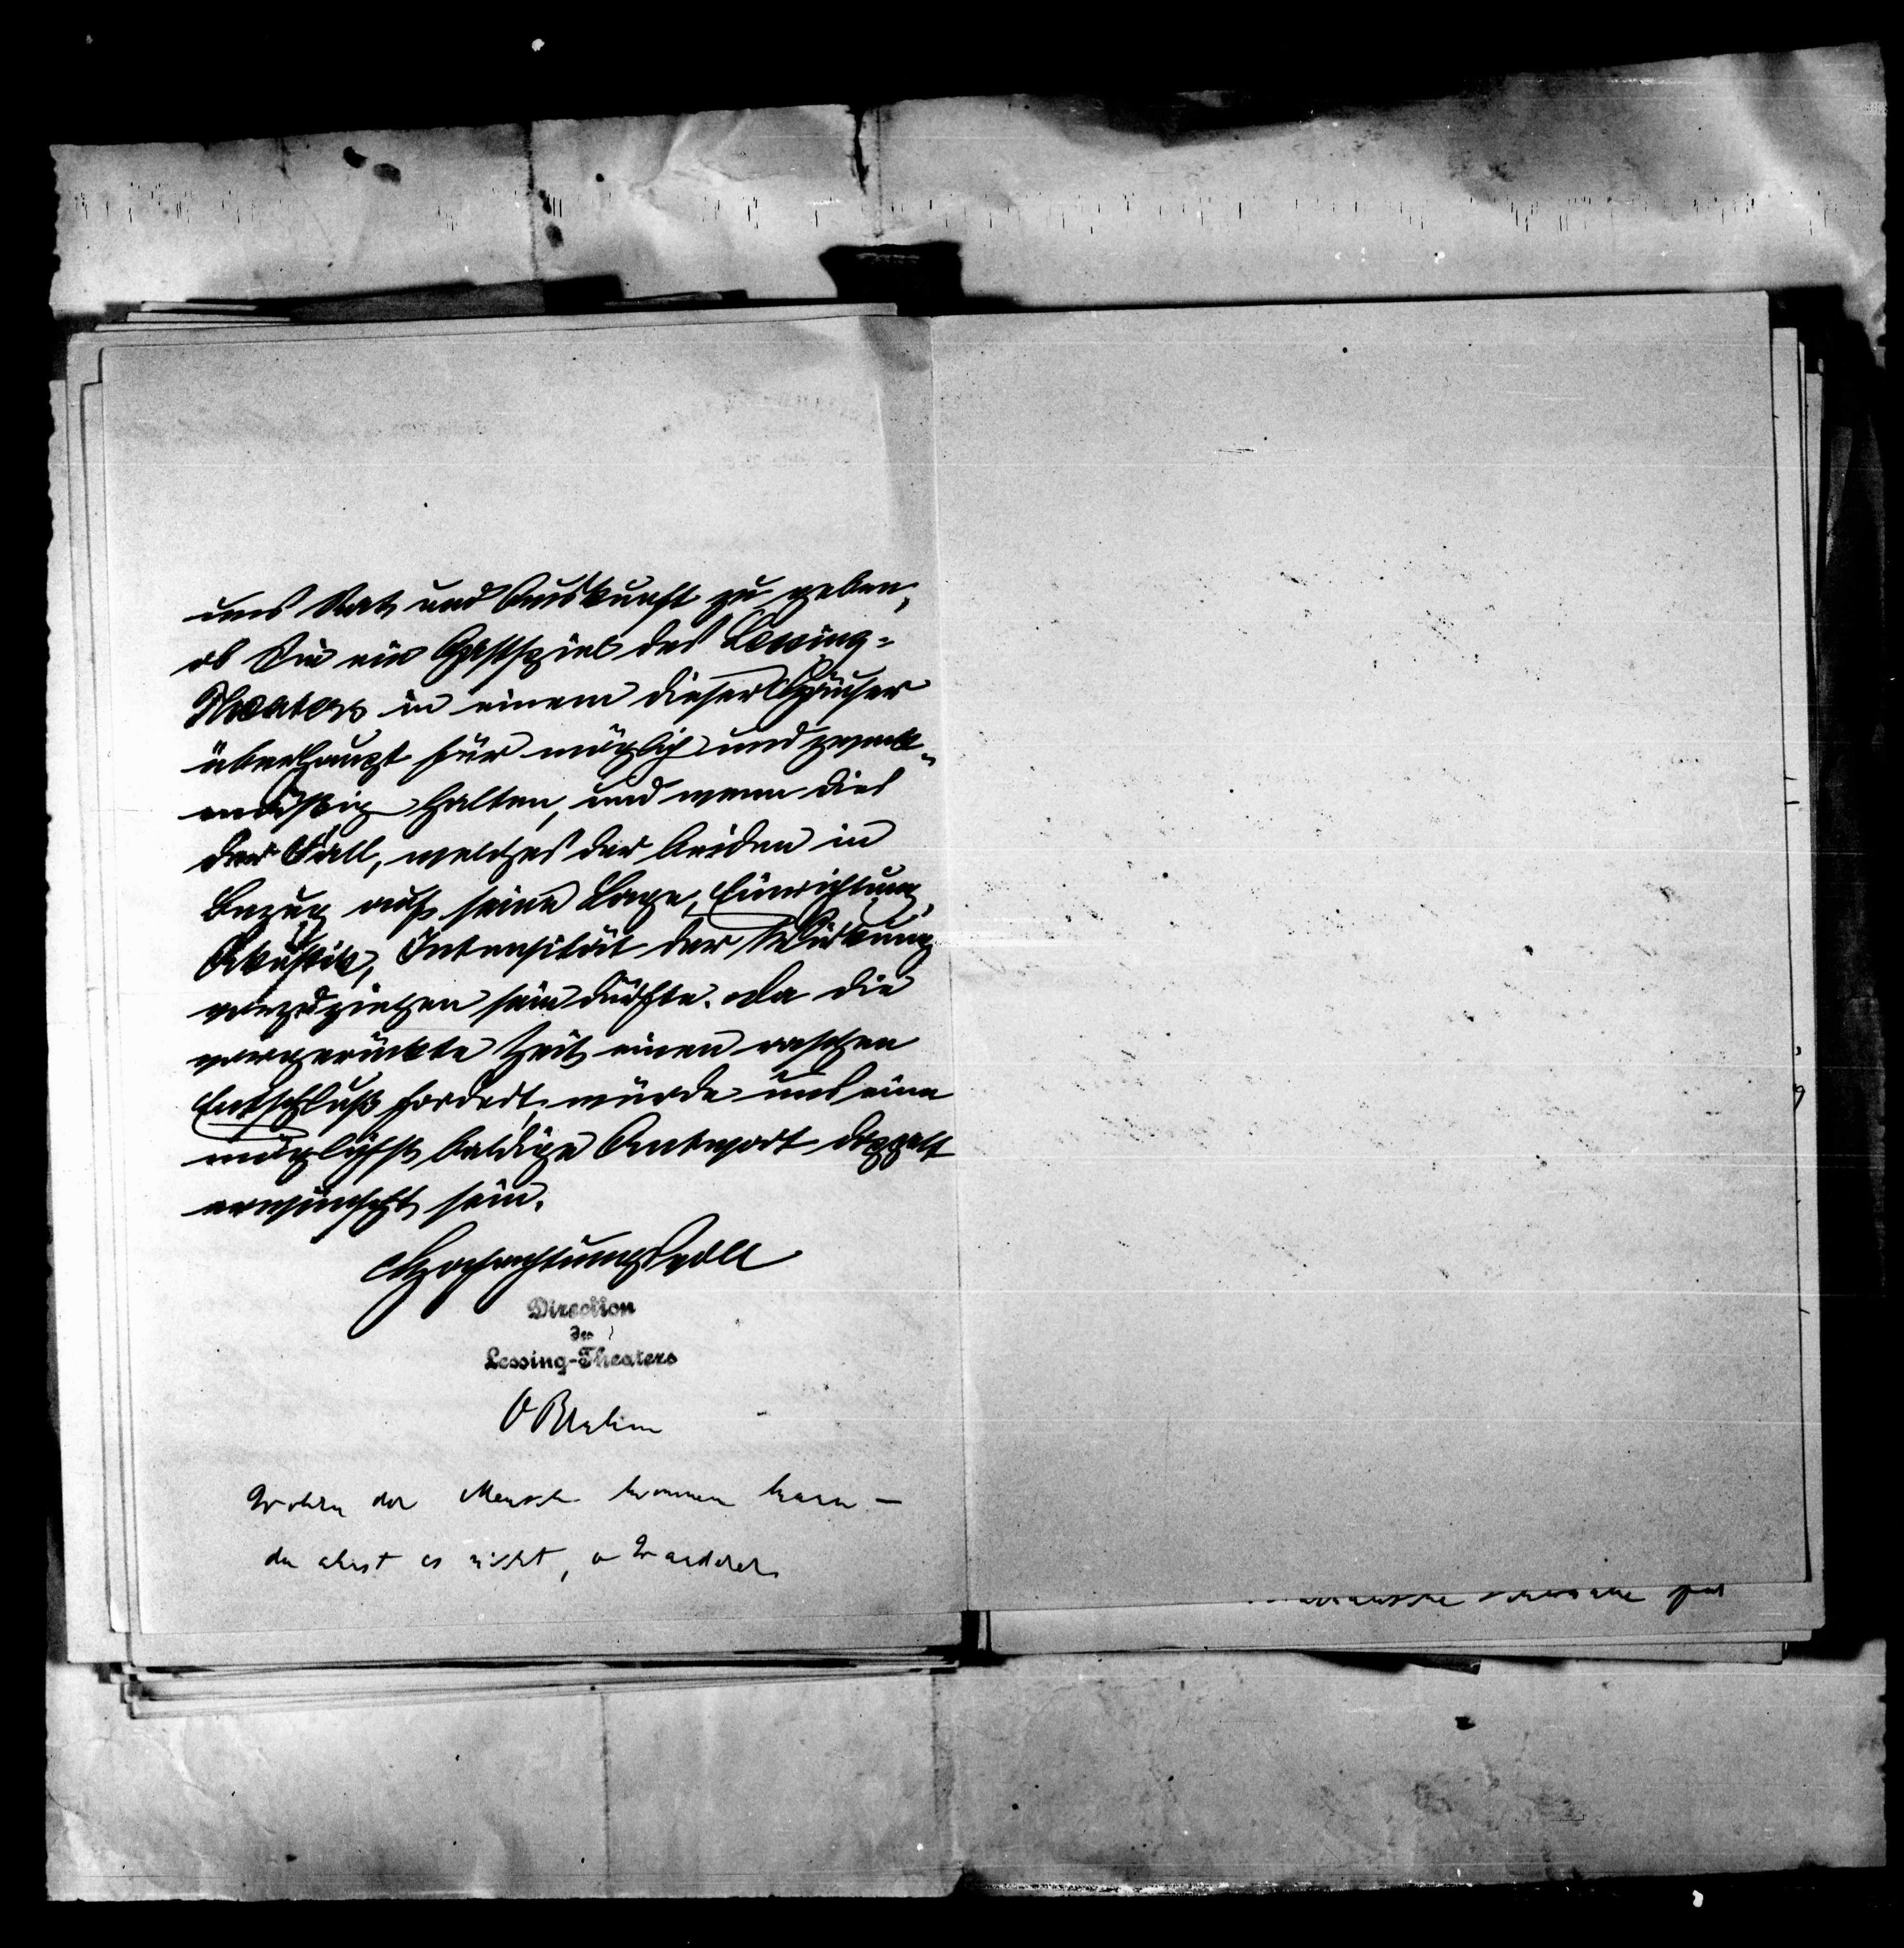 uns Rat und Auskunft zu geben,
ob Sie ein Gastspiel des Lessing-
Theaters in einem dieser Häuser
überhaupt für möglich und zweck-
mäßig halten, und wenn dies
der Fall, welches der beiden in
Bezug auf seine Lage, Einrichtung,
Akustik, Intensität der Wirkung
vorzuziehen sein dürfte. Da die
vorgerückte Zeit einen raschen
Entschluß fordert, würde uns eine
möglichst baldige Antwort doppelt
erwünscht sein.
Hochachtungsvoll
Direction
des
Lessing-Theaters
OBrahm
Wohin der Mensch kommen kann –
du ahnst es nicht, o Wanderer